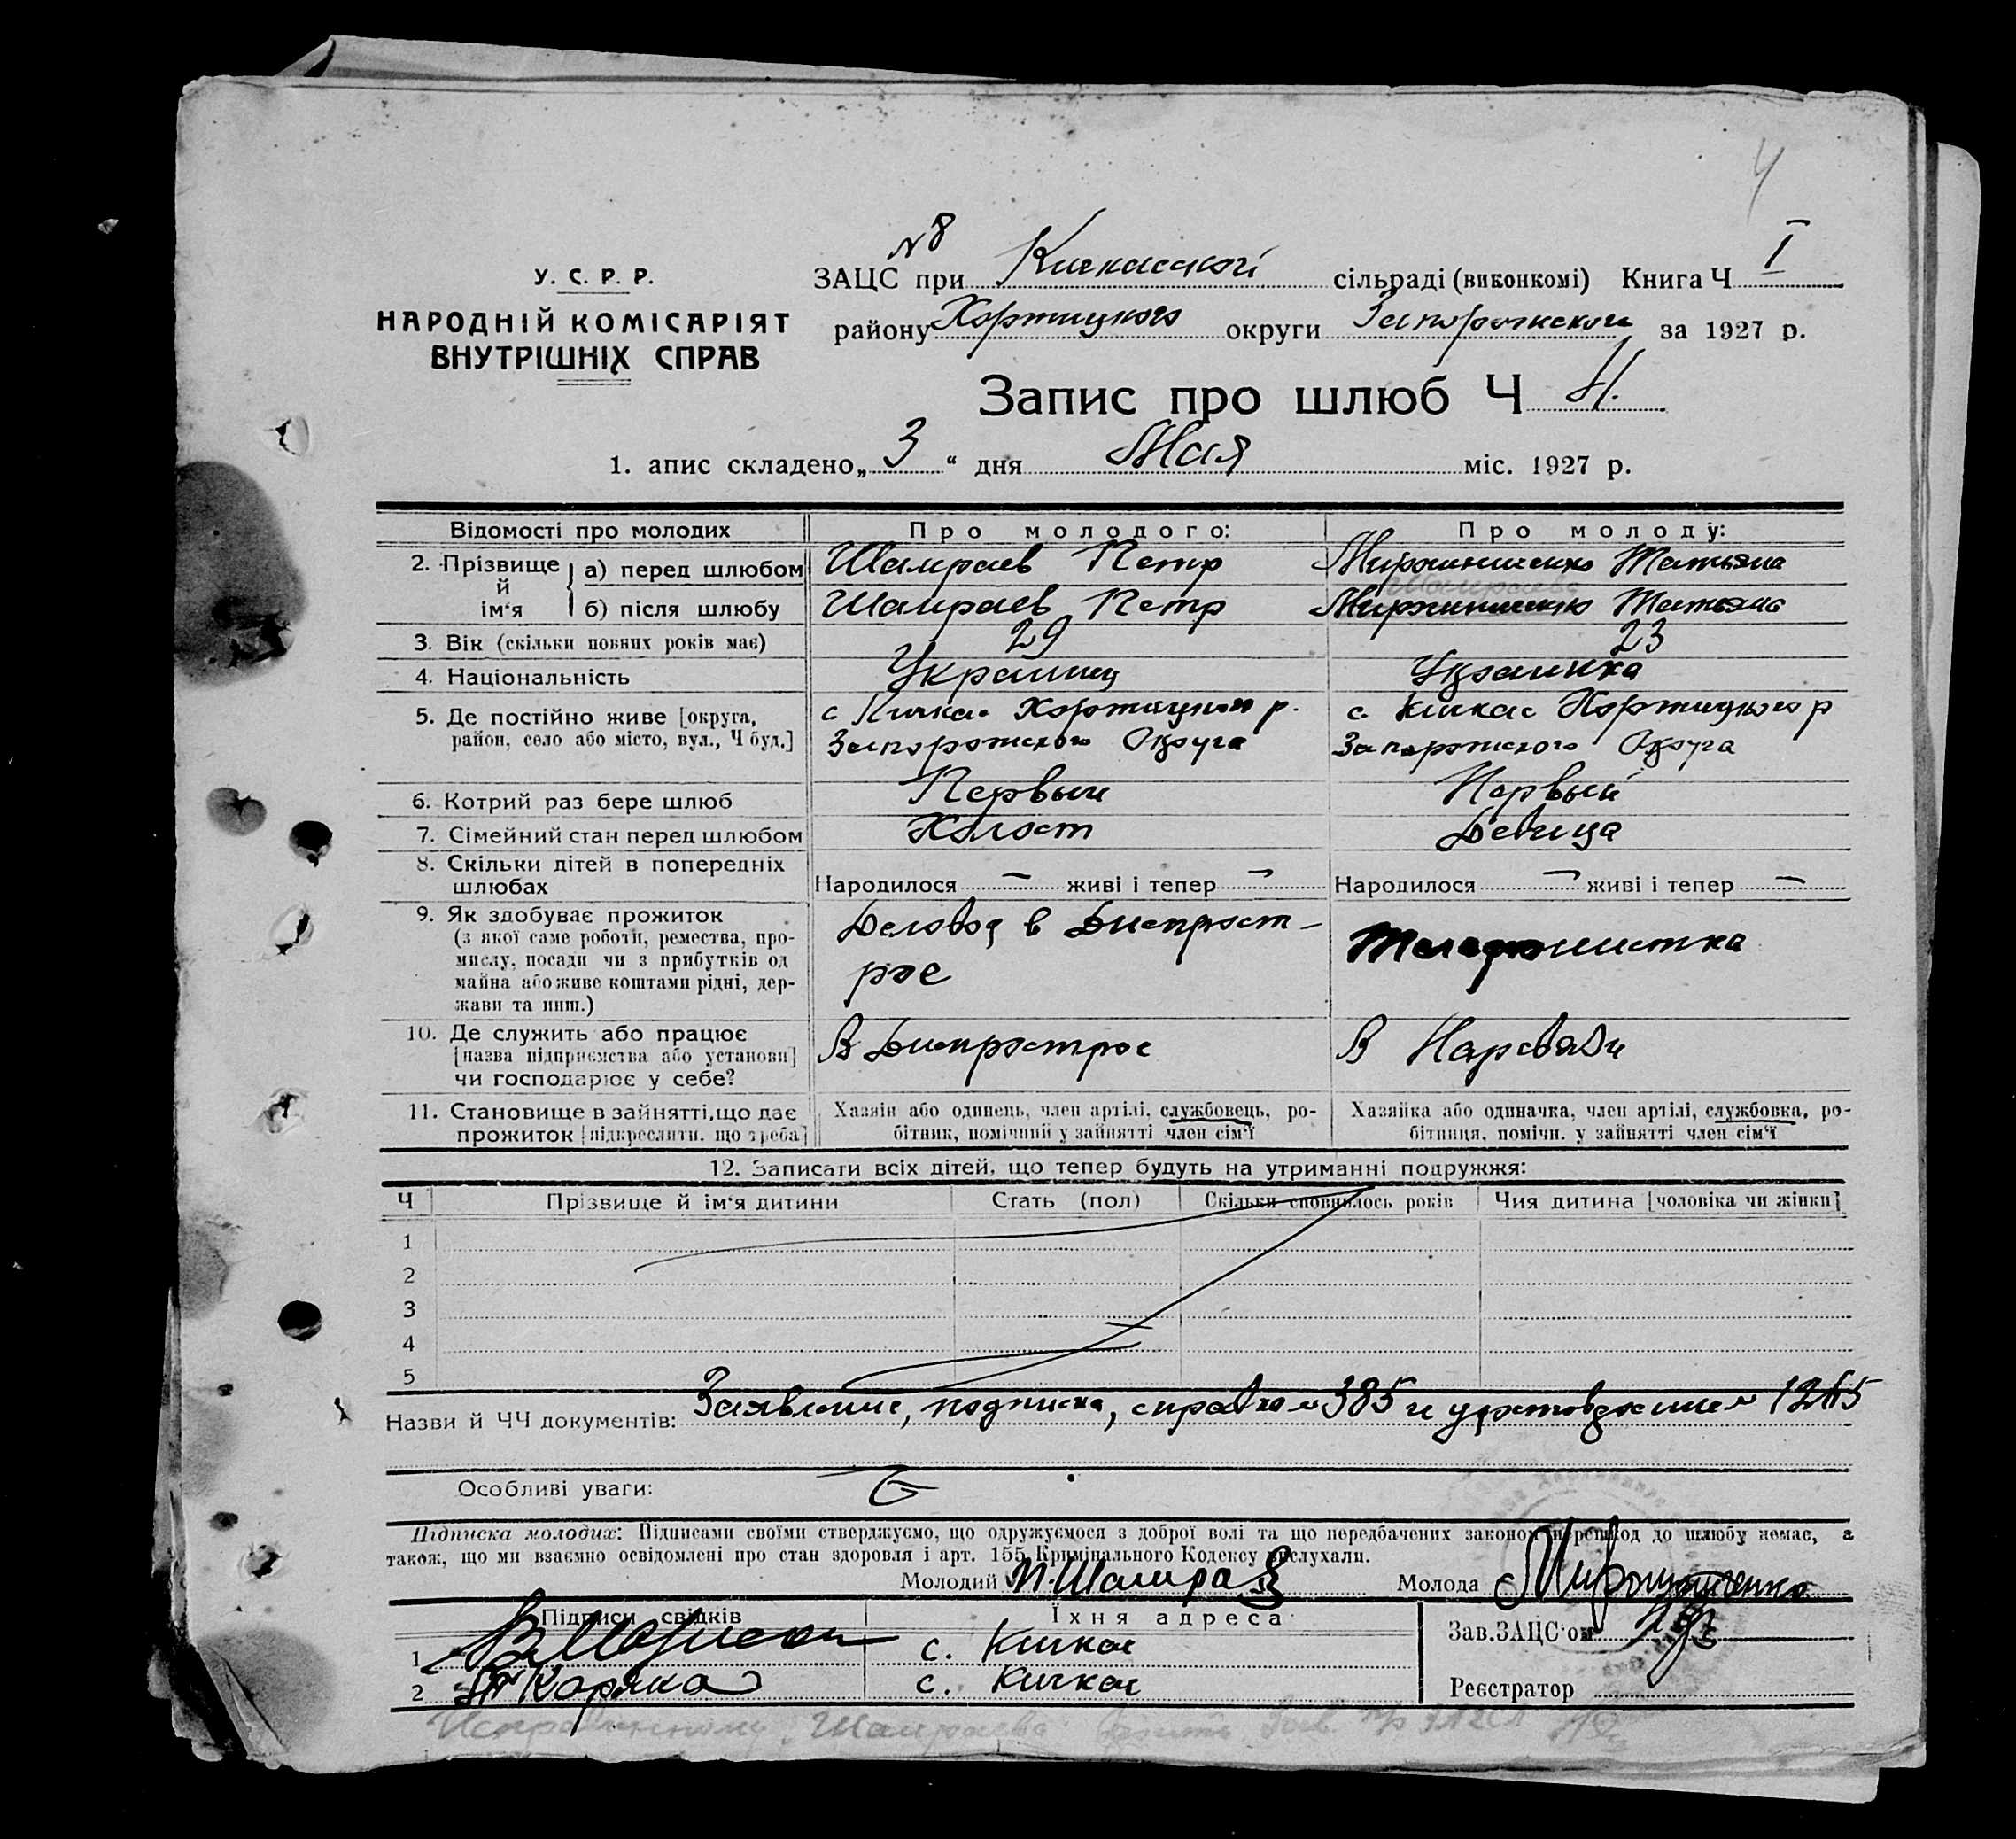 4
№ 8
У. С. Р. Р.
НАРОДНІЙ КОМІСАРІЯТ
ВНУТРІШНІХ СПРАВ
ЗАЦС при Кичкасской сільраді (виконкомі) Книга Ч I
району Хортицкого округи Запорожской за 1927 р.
Запис про шлюб Ч 4.
1. апис складено „ 3 “ дня Мая міс. 1927 р.
Відомості про молодих Про молодого: Про молоду:
2. Прізвище й ім‘я
а) перед шлюбом Шамраев Петр Мирошниченко Татьяна
Шамраева
б) після шлюбу Шамраев Петр Мирошниченко Татьяна
3. Вік (скільки повних років має) 29 23
4. Національність Украинец Украинка
5. Де постійно живе [округа, с Кичкас Хортицкого р. с. Кичкас Хортицкого р
район, село або місто, вул., Ч буд.] Запорожского Округа Запорожского Округа
6. Котрий раз бере шлюб Первый Первый
7. Сімейний стан перед шлюбом Холост Девица
8. Скільки дітей в попередніх
шлюбах Народилося — живі і тепер — Народилося — живі і тепер —
9. Як здобуває прожиток Деловод в Днепрост-
(з якої саме роботи, ремества, про- рое Телефонистка
мислу, посади чи з прибутків од
майна або живе коштами рідні, дер-
жави та инш.)
10. Де служить або працює В Днепрострое В Нарсвязи
[назва підприємства або установи]
чи господарює у себе?
11. Становище в зайнятті, що дає Хазяін або одинець, член артілі, службовець, ро- Хазяйка або одиначка, член артілі, службовка, ро-
прожиток [підкреслити. що треба] бітник, помічний у зайнятті член сім‘ї бітниця, помічн. у зайнятті член сім‘ї
12. Записати всіх дітей, що тепер будуть на утриманні подружжя:
Ч Прізвище й ім‘я дитини Стать (пол) Скільки сповнилось років Чия дитина [чоловіка чи жінки]
1
2
3
4
5
Назви й ЧЧ документів: Заявление, подписка, справка № 385 и удостоверение № 1265
Особливі уваги:
Підписка молодих: Підписами своїми стверджуємо, що одружуємося з доброї волі та що передбачених законом перешкод до шлюбу немає, а
також, що ми взаємно освідомлені про стан здоровля і арт. 155 Кримінального Кодексу вислухали.
Молодий П. Шамраев Молода Мирошниченко
Підписи свідків Їхня адреса
Зав. ЗАЦС‘ом
1 с. Кичкас
2 Коряка с. Кичкас
Реєстратор
Шамраева